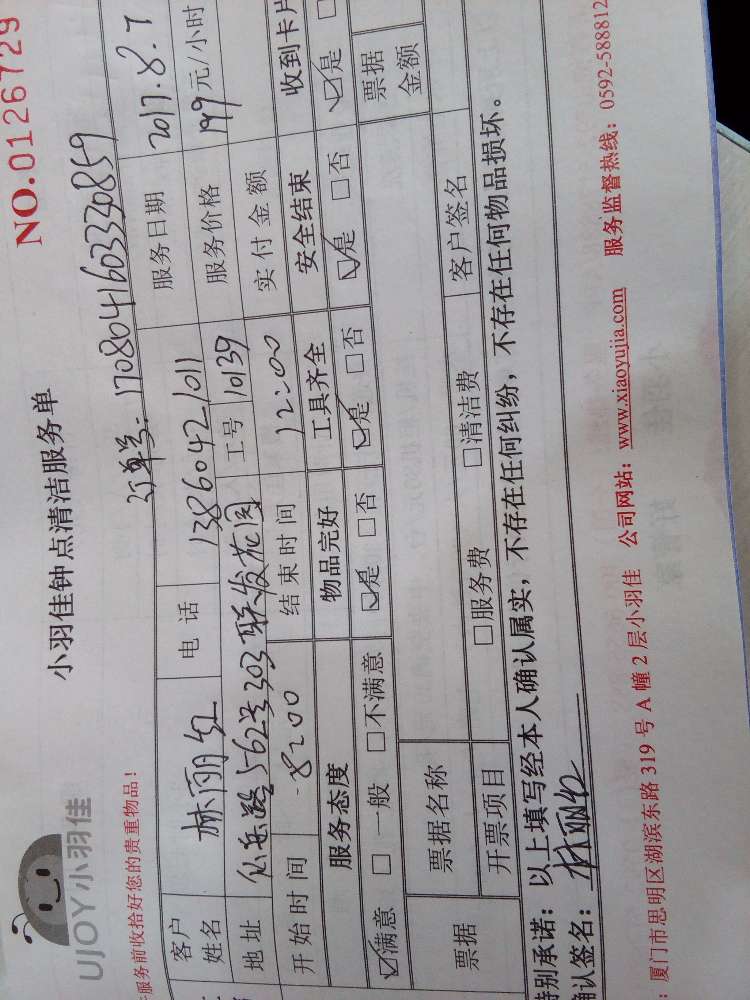 NO.0126729
小羽佳钟点清洁服务单
UJOY小羽佳
服务前收拾好您的贵重物品!
订单号:170804160330859
客户姓名 林丽红 电话 13860421011 服务日期 2017.8.7
地址 仙岳路562号303联发花园 工号 10139 服务价格 199元/小时
开始时间 8:00 结束时间 12:00 实付金额
服务态度 物品完好 工具齐全 安全结束 收到卡片
☑满意 □一般 □不满意 ☑是 □否 ☑是 □否 ☑是 □否 ☑是
票据 票据名称 票据金额
开票项目 □服务费 □清洁费 客户签名
特别承诺:以上填写经本人确认属实,不存在任何纠纷,不存在任何物品损坏。
确认签名:林丽红
:厦门市思明区湖滨东路319号A幢2层小羽佳 公司网站:www.xiaoyujia.com 服务监督热线:0592-588812